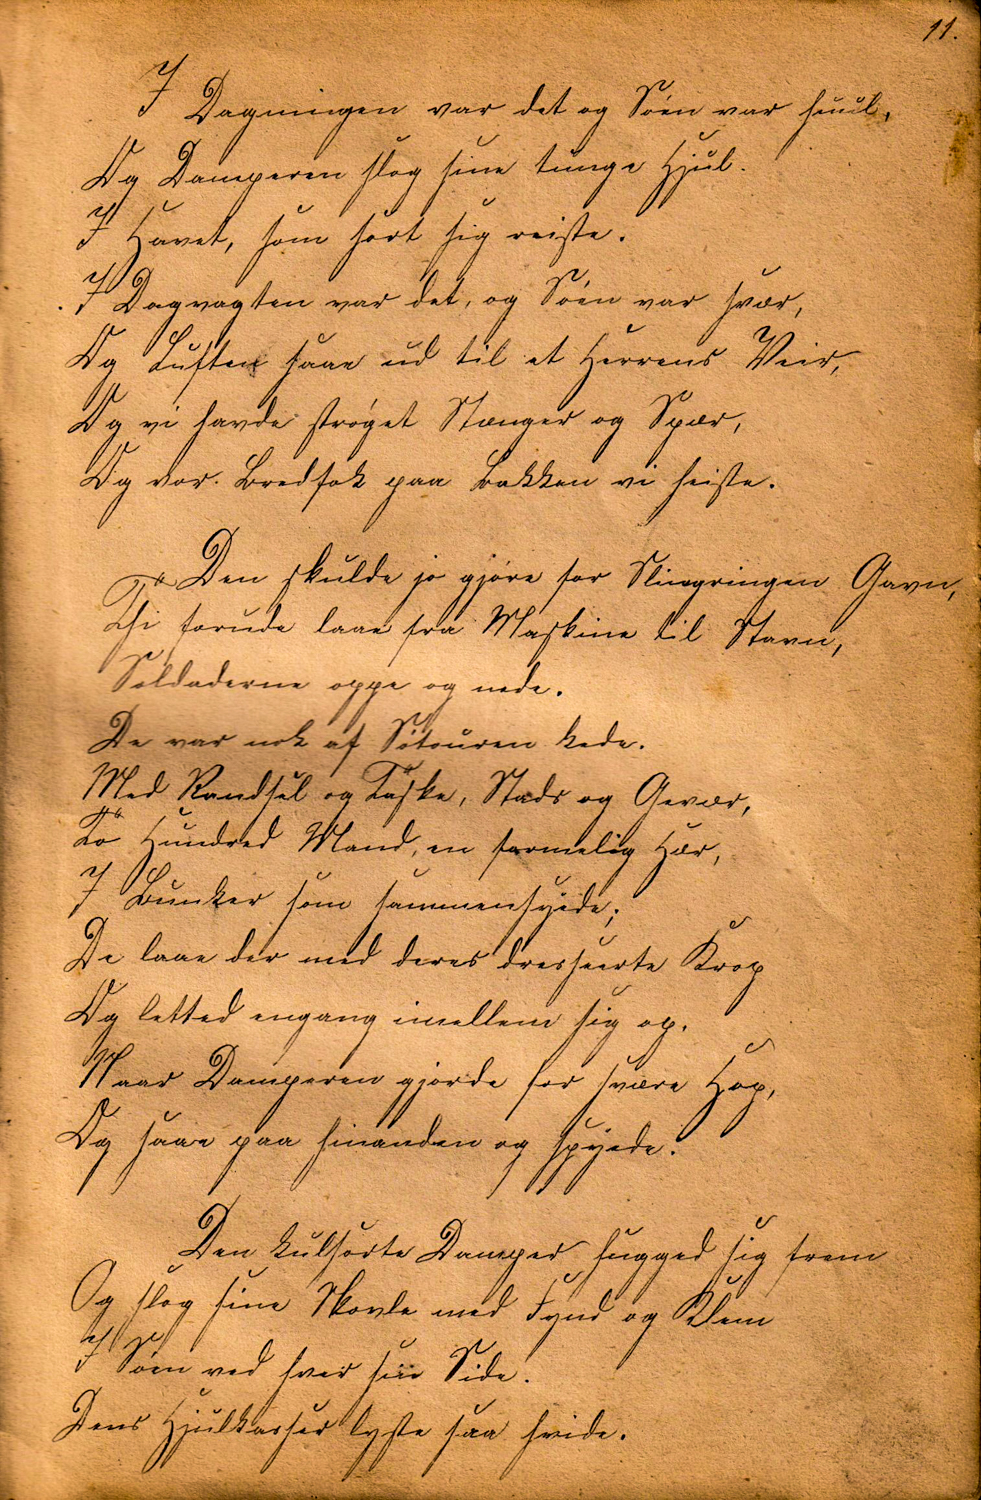 11.
I Dagningen var det og Søen var huul,
Og Damperen slog sine tunge Hjul.
I Havet, som sort sig reiste.
I Dagvagten var det, og Søen var svær,
Og Luften saae ud til et Herrens Veir,
Og vi havde strøget Stænger og Spær,
Og vor Bredfok paa Bakken vi heiste.
Den skulde jo gjøre for Slingringen Gavn,
Thi forude laae fra Maskine til Stavn,
Soldaderne oppe og nede.
De var nok af Søtouren kede.
Med Randsel og Taske, Stads og Gevær,
To Hundred Mand, en formelig Hær,
I Bunker som sammensyede;
De laae der med deres dresseerte Krop
Og letted engang imellem sig op,
Naar Damperen gjorde for svære Hop,
Og saae paa hinanden og spyede.
Den kulsorte Damper hugged sig frem
Og slog sine Skovle med Fynd og Klem
I Søen ved hver sin Side.
Dens Hjulkasser lyste saa hvide.